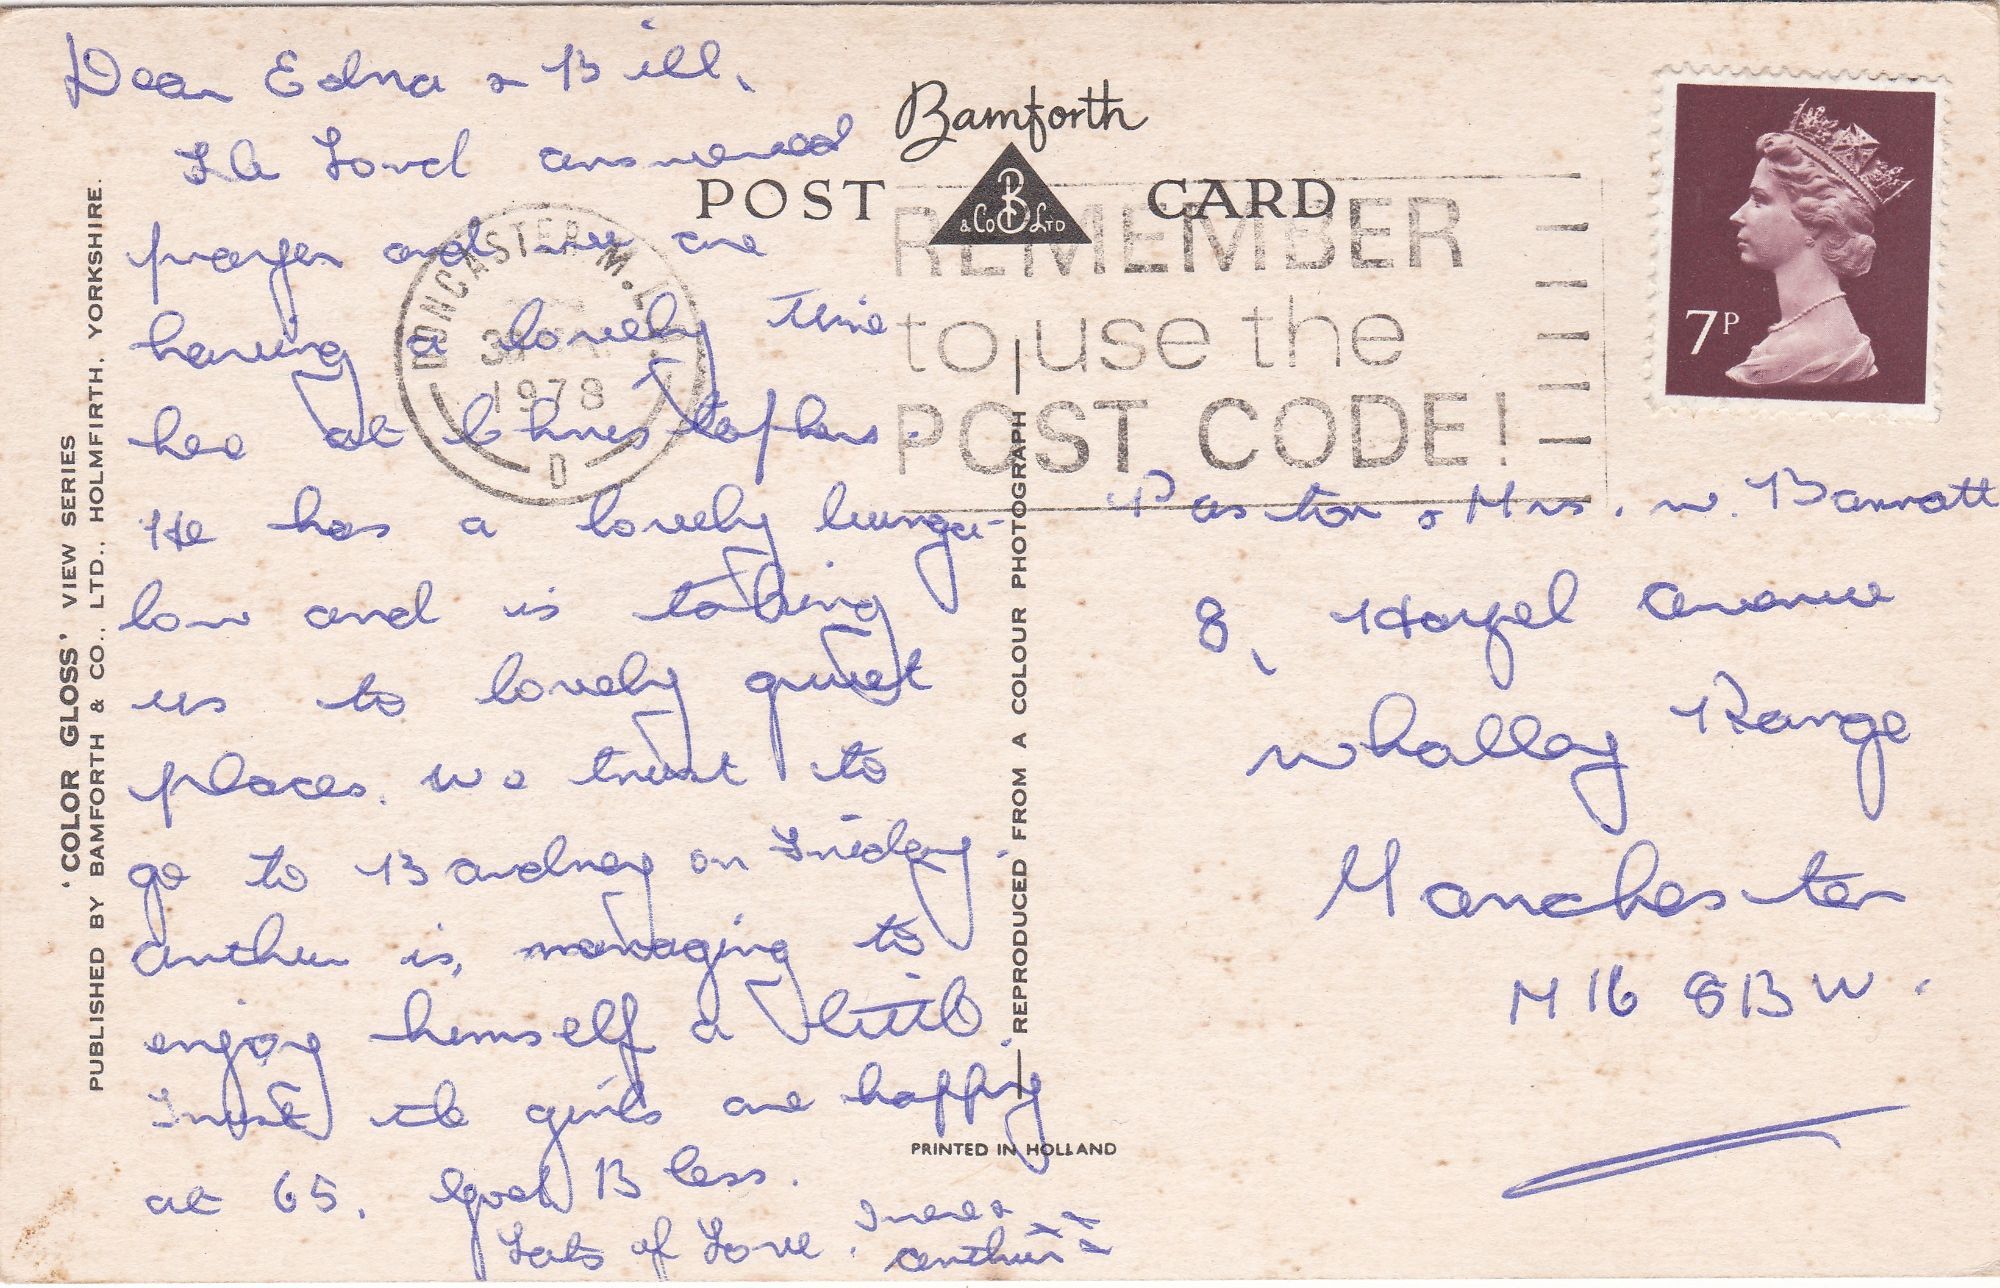 Dear Edna & Bill,
The Lord answered
prayer and we are
having a lovely time
here at Christophers.
He has a lovely bunga-
low and is taking
us to lovely quiet
places. We trust to
go to Bardney on Friday.
Arthur is, managing to
enjoy himself a little.
Trust the girls are happy
at 65. God Bless.
Lots of Love. Irene &
Arthur x x x x
Bamforth
POST CARD
B & Co LTD
DONCASTER M.L.
1978
D
REMEMBER
to use the
POST CODE!
7P
Pastor & Mrs. W. Barratt
8, Hazel Avenue
Whalley Range
Manchester
M16 8BW.
'COLOR GLOSS' VIEW SERIES
PUBLISHED BY BAMFORTH & CO., LTD., HOLMFIRTH, YORKSHIRE.
REPRODUCED FROM A COLOUR PHOTOGRAPH
PRINTED IN HOLLAND